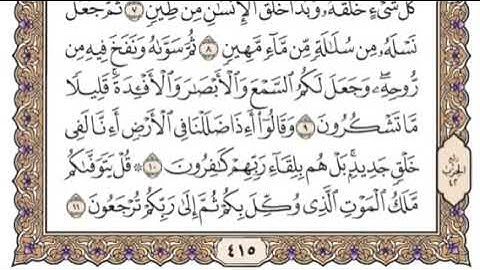 كُلَّ شَىْءٍ خَلَقَهُۥ وَبَدَأَ خَلْقَ ٱلْإِنسَٰنِ مِن طِينٍ ٧ ثُمَّ جَعَلَ
نَسْلَهُۥ مِن سُلَٰلَةٍ مِّن مَّآءٍ مَّهِينٍ ٨ ثُمَّ سَوَّىٰهُ وَنَفَخَ فِيهِ مِن
رُّوحِهِۦ وَجَعَلَ لَكُمُ ٱلسَّمْعَ وَٱلْأَبْصَٰرَ وَٱلْأَفْـِٔدَةَ قَلِيلًا
مَّا تَشْكُرُونَ ٩ وَقَالُوٓا۟ أَءِذَا ضَلَلْنَا فِى ٱلْأَرْضِ أَءِنَّا لَفِى
خَلْقٍ جَدِيدٍۭ بَلْ هُم بِلِقَآءِ رَبِّهِمْ كَٰفِرُونَ ١٠ ۞ قُلْ يَتَوَفَّىٰكُم
مَّلَكُ ٱلْمَوْتِ ٱلَّذِى وُكِّلَ بِكُمْ ثُمَّ إِلَىٰ رَبِّكُمْ تُرْجَعُونَ ١١
ربع
الحزب
٤٢
٤١٥